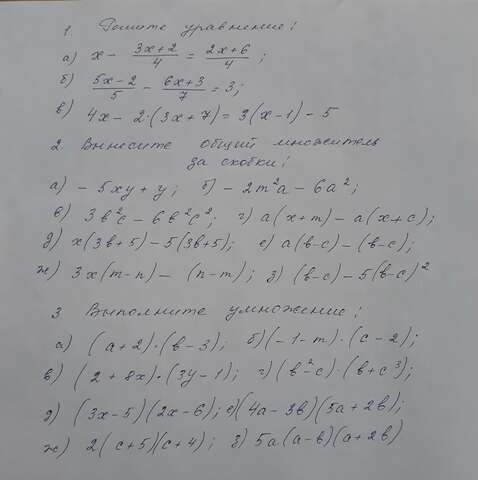 1. Решите уравнение:
а) x - (3x+2)/4 = (2x+6)/4 ;
б) (5x-2)/5 - (6x+3)/7 = 3;
в) 4x - 2·(3x+7) = 3(x-1) - 5
2. Вынесите общий множитель
за скобки:
а) - 5xy + y; б) - 2m²a - 6a²;
в) 3в²с - 6в²с²; г) a(x+m) - a(x+c);
д) x(3в+5) - 5(3в+5); е) a(в-с) - (в-с);
ж) 3x(m-n) - (n-m); з) (в-с) - 5(в-с)²
3. Выполните умножение:
а) (a+2)·(в-3); б) (-1-m)·(c-2);
в) (2+8x)·(3y-1); г) (в²-с)·(в+с³);
д) (3x-5)(2x-6); е) (4a-3в)(5a+2в);
ж) 2(c+5)(c+4); з) 5a(a-в)(a+2в)